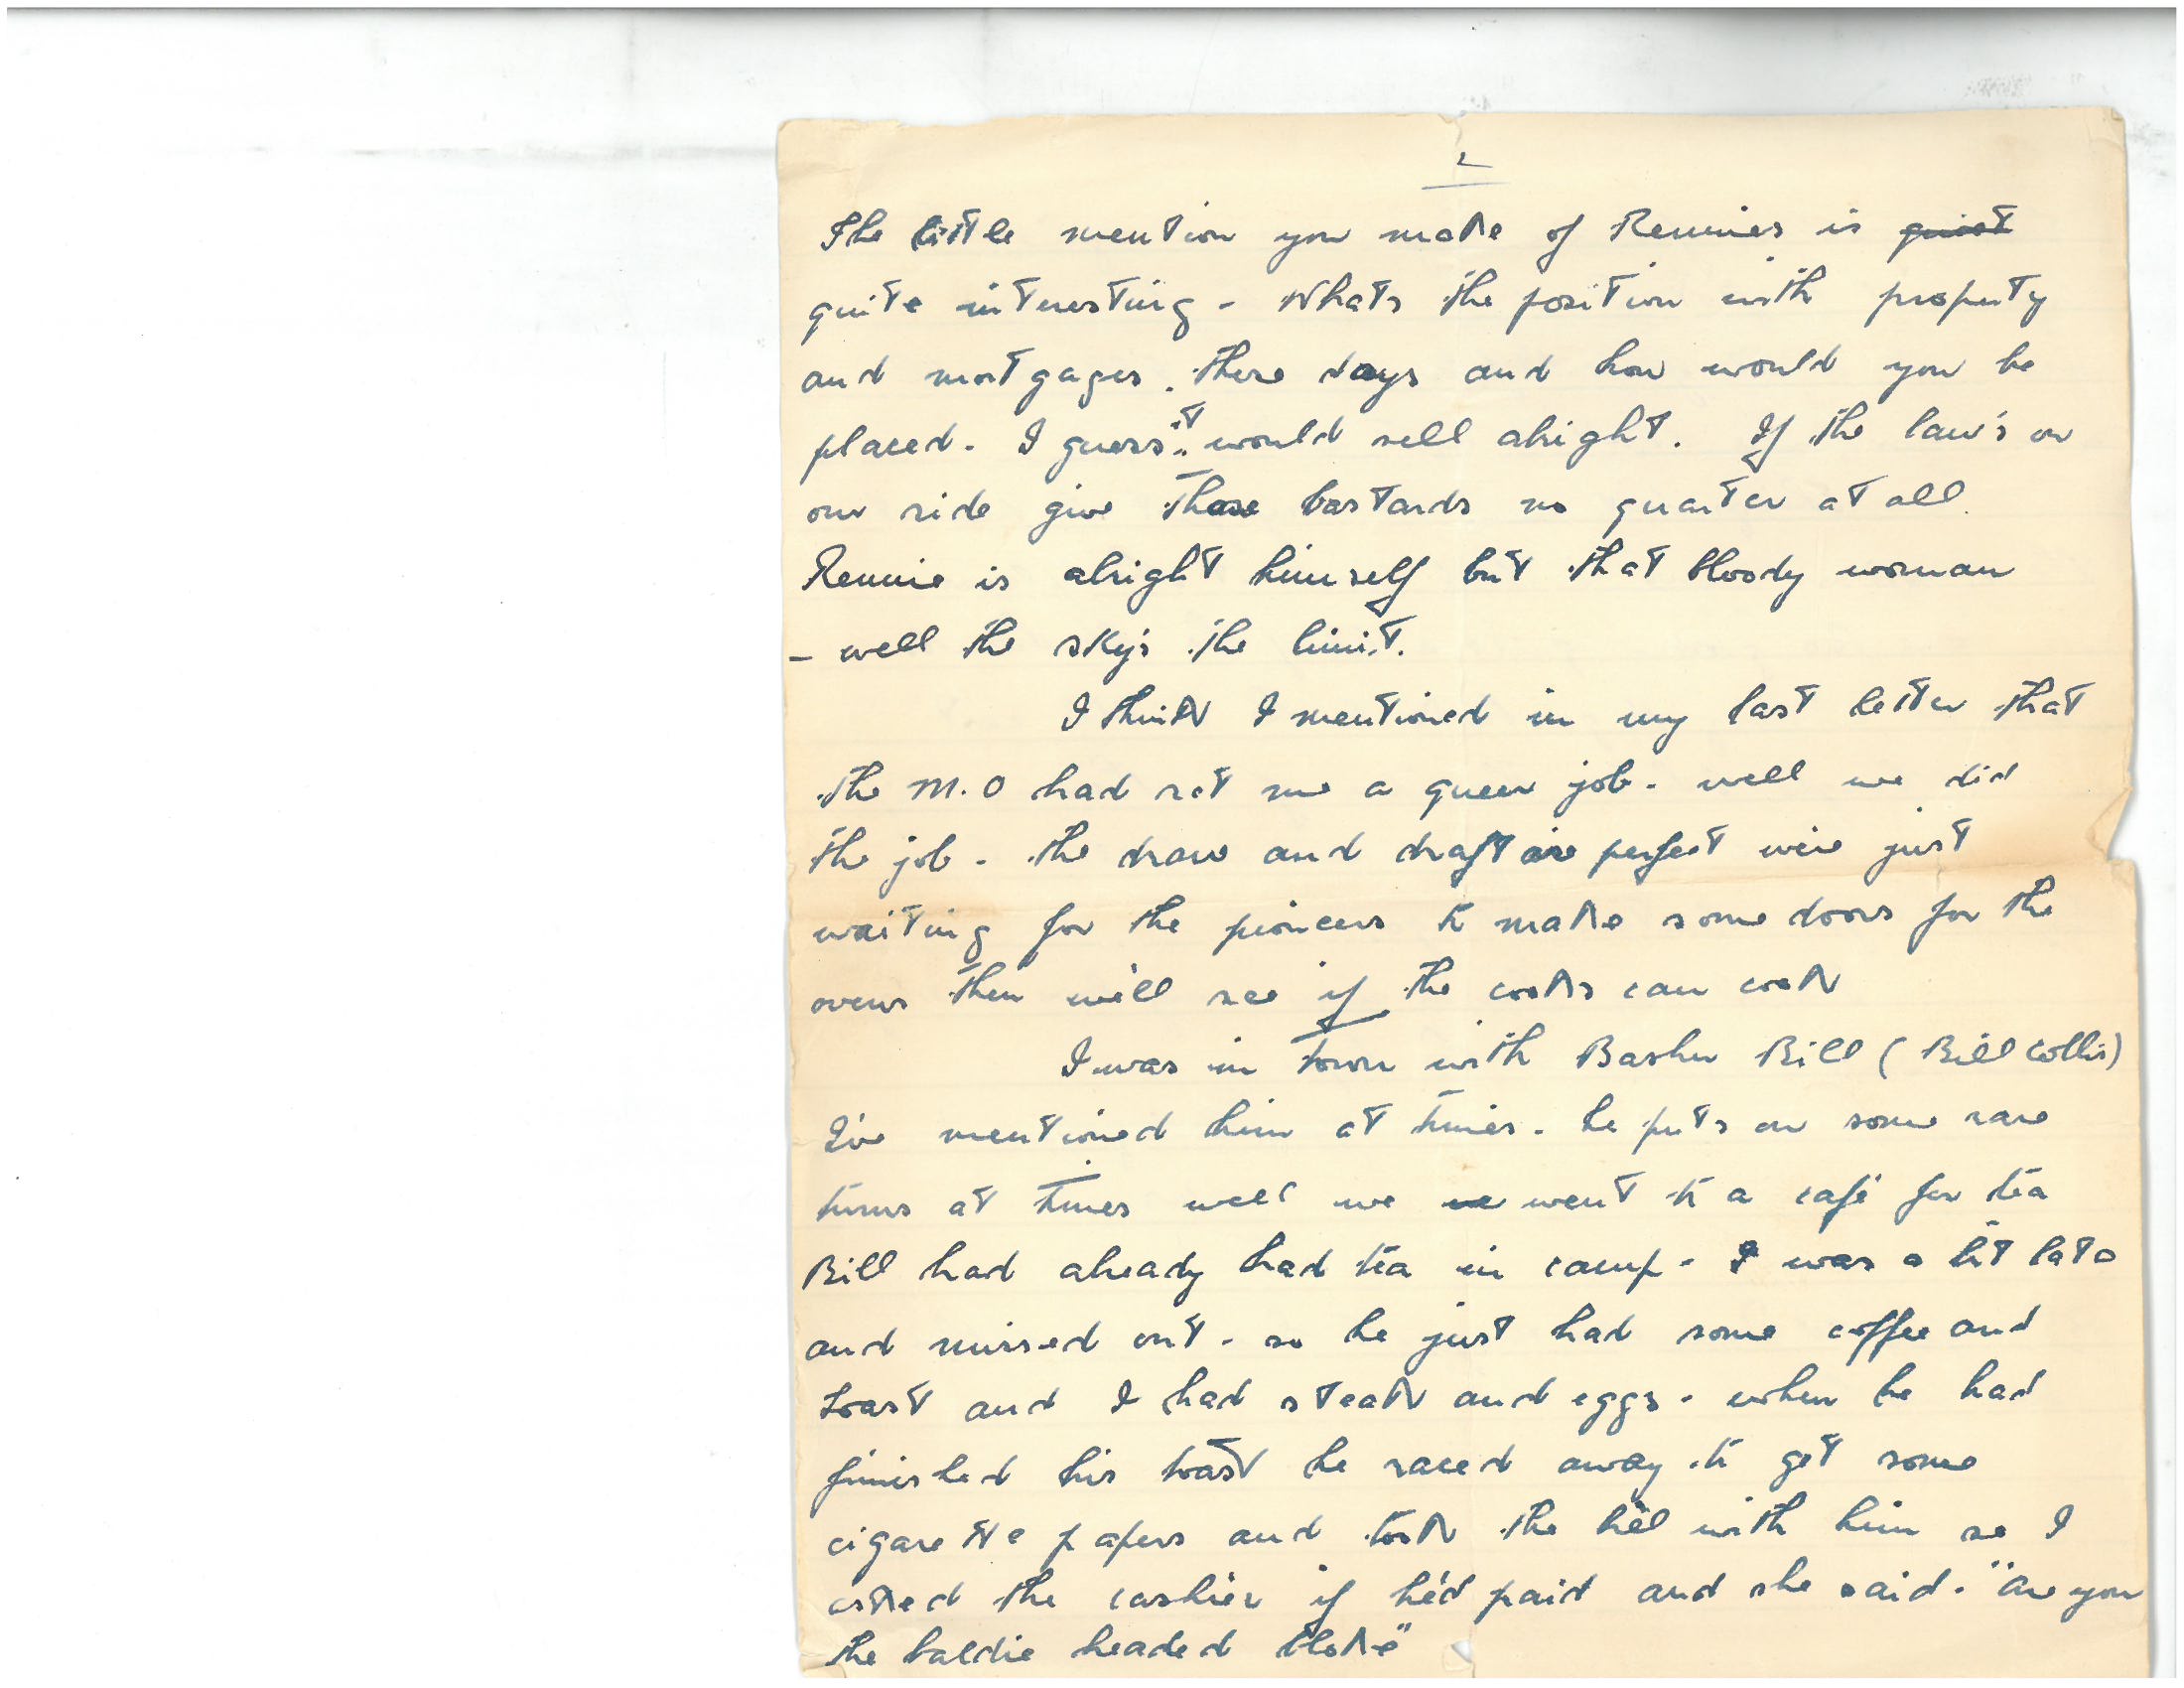 2
The little mention you make of Rennies is quiet
quite interesting - Whats the position with property
and mortgages. these days and how would you be
placed. I guess it would sell alright. If the law's on
our side give those bastards no quarter at all.
Rennie is alright himself but that bloody woman
- well the sky's the limit.
I think I mentioned in my last letter that
the M.O had set me a queer job. well we did
the job - the draw and draft are perfect were just
waiting for the pioneers to make some doors for the
ovens then we'll see if the cooks can cook
I was in town with Basher Bill (Bill Collis)
I've mentioned him at times. he puts on some rare
turns at times well we we went to a café for tea
Bill had already had tea in camp - I was a bit late
and missed out - so he just had some coffee and
toast and I had steak and eggs. when he had
finished his toast he raced away to get some
cigarette papers and took the bill with him so I
asked the cashier if he'd paid and she said. "are you
the baldie headed bloke"